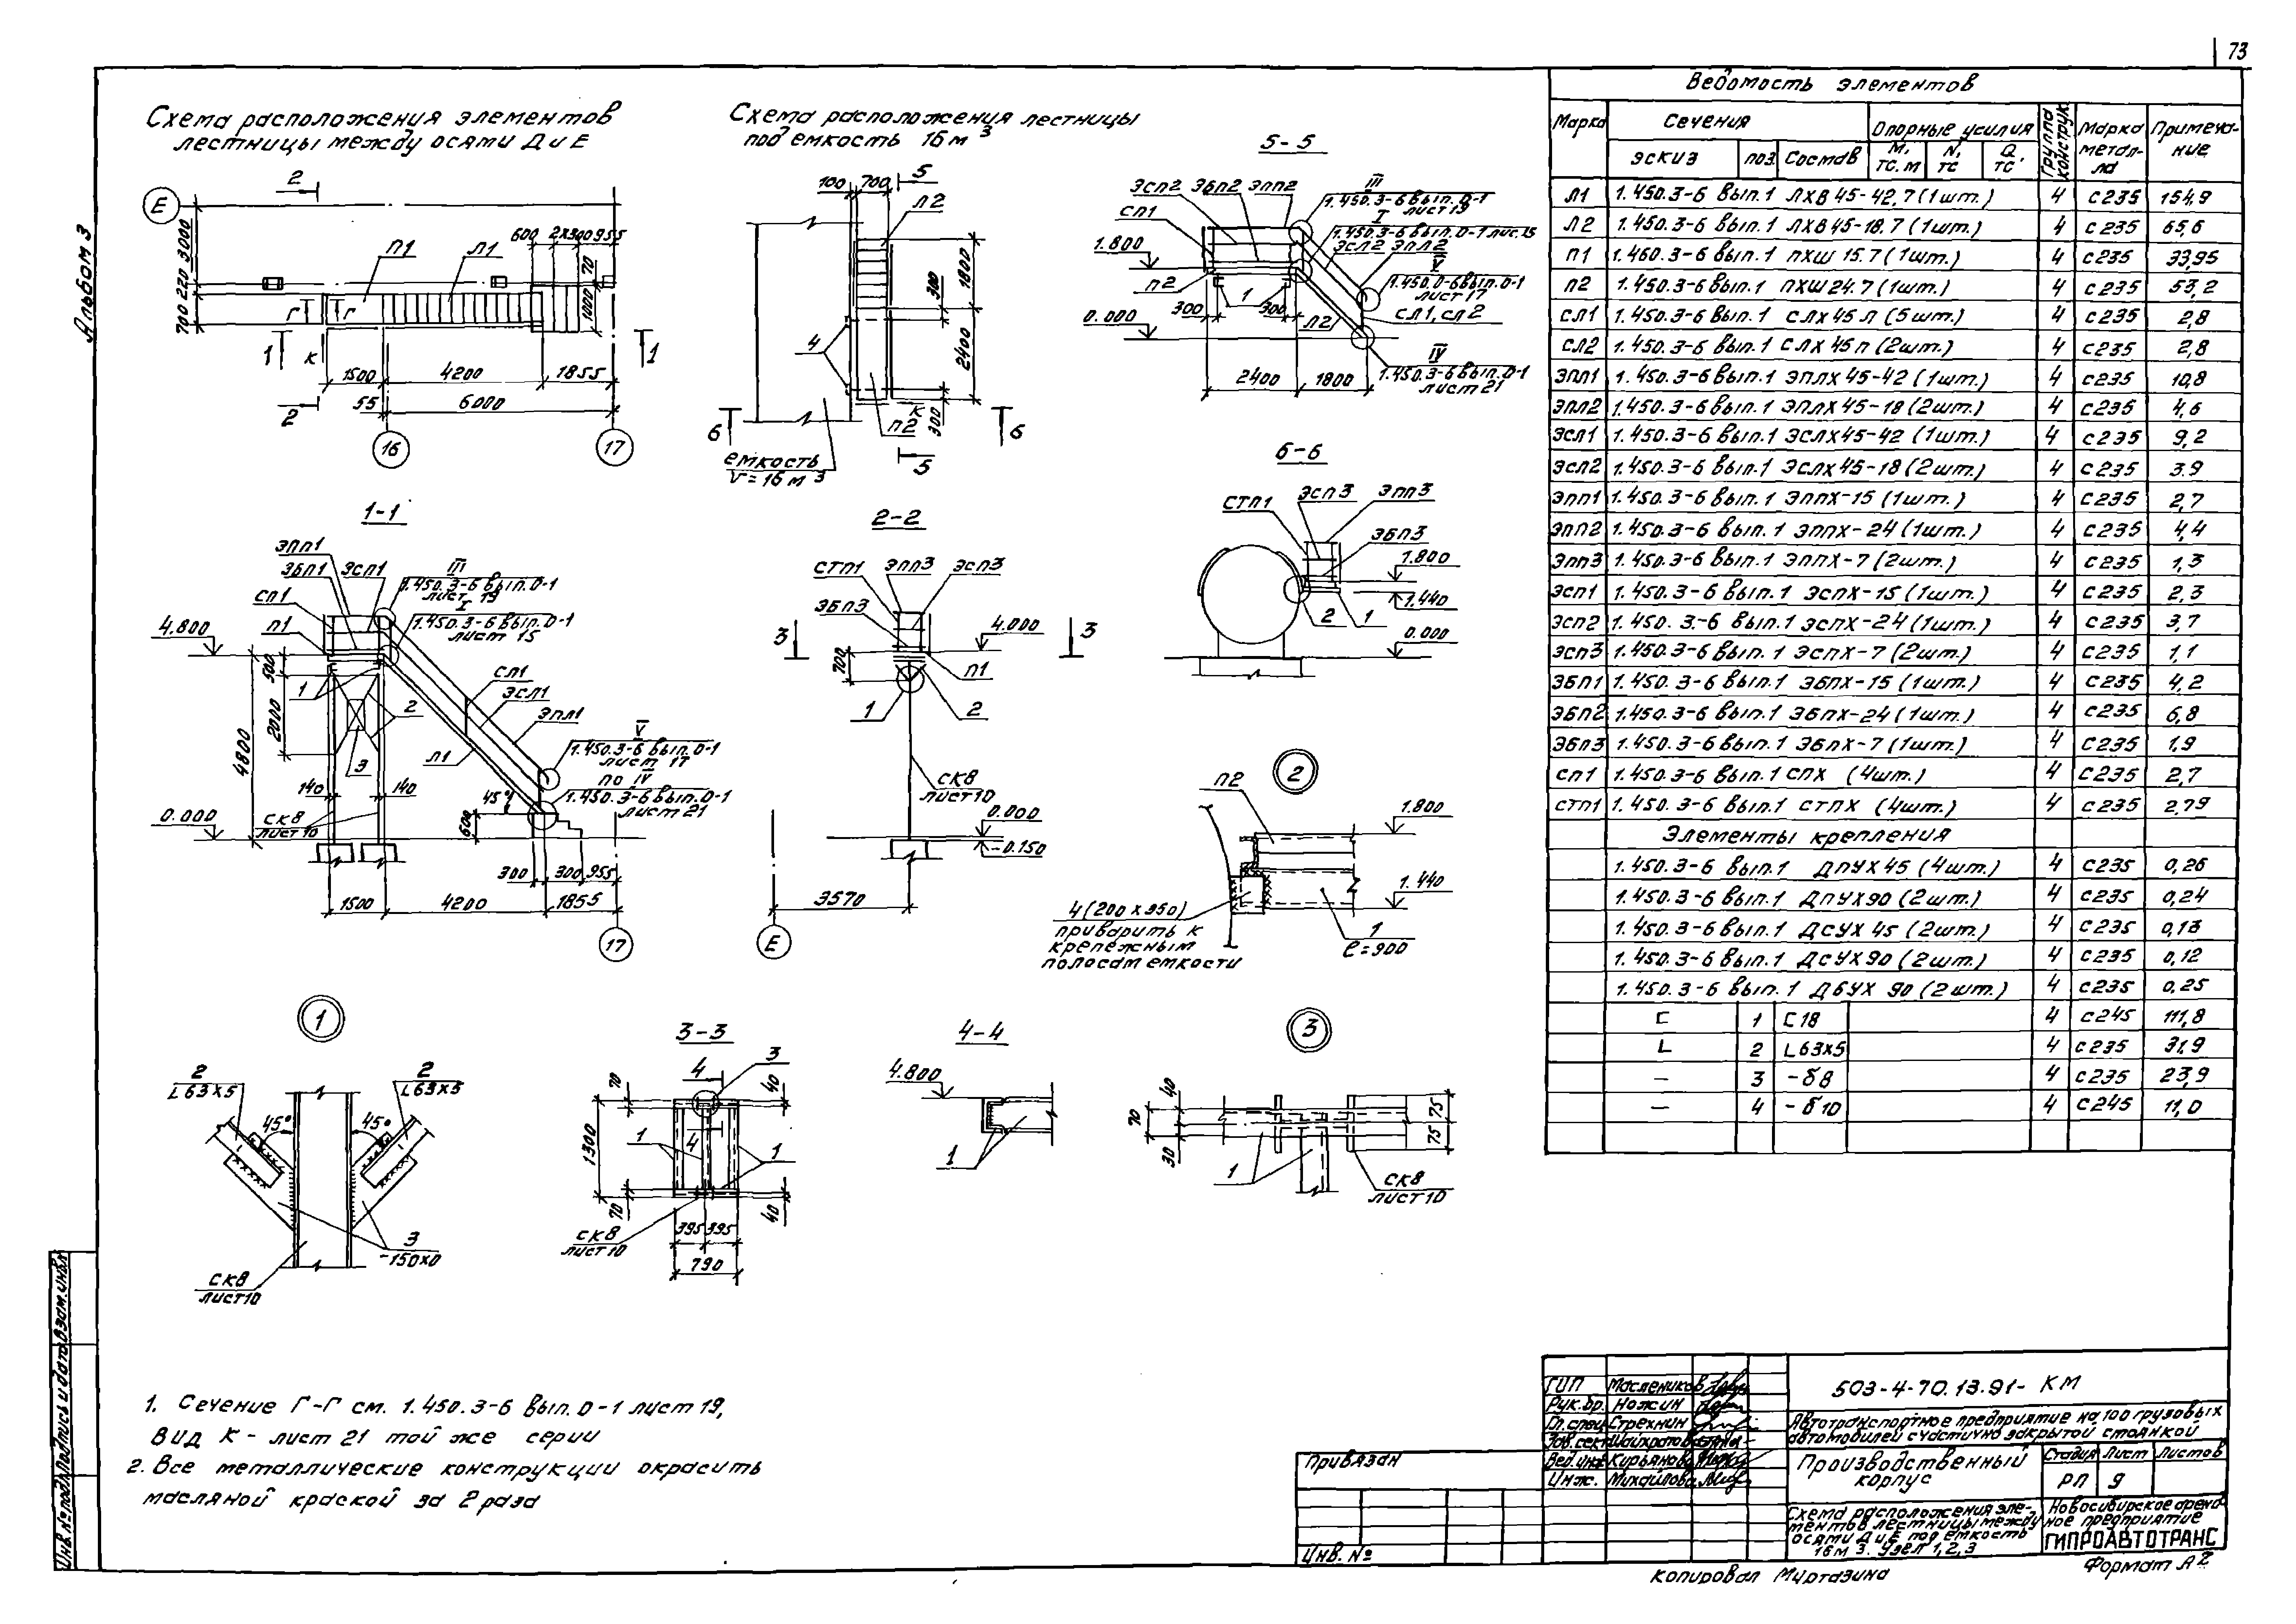 73
Альбом 3
Схема расположения элементов
лестницы между осями Д и Е
2
Е
3000
220
700
П1
Л1
600
2х300
955
70
1000
Г
Г
1
1
К
1500
4200
1855
2
55
6000
16
17
Схема расположения лестницы
под емкость 16 м³
100
700
5
Л2
1800
300
4
2400
К
300
П2
6
6
5
емкость
V = 16 м³
5-5
ЭСП2 ЭБП2 ЭПП2
СП1
III
1.450.3-6 вып. 0-1
лист 19
I
1.450.3-6 вып. 0-1 лист 15
ЭСЛ2 ЭПЛ2
V
1.450.0-6 вып. 0-1
лист 17
СЛ1, СЛ2
1.800
П2
300
1
300
Л2
0.000
IV
1.450.3-6 вып. 0-1
лист 21
2400
1800
6-6
СТП1
ЭСП3
ЭПП3
ЭБП3
1.800
1.440
2
1
0.000
1-1
ЭПП1
ЭБП1
ЭСП1
СП1
П1
III
1.450.3-6 вып. 0-1
лист 19
I
1.450.3-6 вып. 0-1
лист 15
4.800
500
1
2000
2
3
4800
СЛ1
ЭСЛ1
ЭПЛ1
Л1
V
1.450.3-6 вып. 0-1
лист 17
по IV
1.450.3-6 вып. 0-1
лист 21
45°
140
140
0.000
СК8
лист 10
600
300
300
955
1500
4200
1855
17
2-2
СТП1
ЭПП3
ЭСП3
ЭБП3
3
3
4.000
700
П1
1
2
СК8
лист 10
0.000
-0.150
3570
Е
2
П2
1.800
1.440
4 (200 х 350)
приварить к
крепежным
полосам емкости
1
ℓ=900
1
2
L 63х5
2
L 63х5
45°
45°
3
-150х0
СК8
лист 10
3-3
4
3
70
40
1300
1
4
1
70
40
СК8
лист 10
395
395
790
4-4
4.800
1
3
40
70
30
75
75
1
СК8
лист 10
1. Сечение Г-Г см. 1.450.3-6 вып. 0-1 лист 19,
вид К - лист 21 той же серии
2. Все металлические конструкции окрасить
масляной краской за 2 раза
Ведомость элементов
Марка Сечения Опорные усилия Группа конструк. Марка метал-ла Примеча-ние
эскиз поз. Состав М, тс.м N, тс Q, тс
Л1 1.450.3-6 вып.1 ЛХВ 45-42.7 (1шт.) 4 С235 154,9
Л2 1.450.3-6 вып.1 ЛХВ 45-18.7 (1шт.) 4 С235 65,6
П1 1.460.3-6 вып.1 ПХШ 15.7 (1шт.) 4 С235 33,95
П2 1.450.3-6 вып.1 ПХШ 24.7 (1шт.) 4 С235 53,2
СЛ1 1.450.3-6 вып.1 СЛХ 45 Л (5шт.) 4 С235 2,8
СЛ2 1.450.3-6 вып.1 СЛХ 45 П (2шт.) 4 С235 2,8
ЭПЛ1 1.450.3-6 вып.1 ЭПЛХ 45-42 (1шт.) 4 С235 10,8
ЭПЛ2 1.450.3-6 вып.1 ЭПЛХ 45-18 (2шт.) 4 С235 4,6
ЭСЛ1 1.450.3-6 вып.1 ЭСЛХ 45-42 (1шт.) 4 С235 9,2
ЭСЛ2 1.450.3-6 вып.1 ЭСЛХ 45-18 (2шт.) 4 С235 3.9
ЭПП1 1.450.3-6 вып.1 ЭППХ-15 (1шт.) 4 С235 2,7
ЭПП2 1.450.3-6 вып.1 ЭППХ-24 (1шт.) 4 С235 4,4
ЭПП3 1.450.3-6 вып.1 ЭППХ-7 (2шт.) 4 С235 1,3
ЭСП1 1.450.3-6 вып.1 ЭСПХ-15 (1шт.) 4 С235 2,3
ЭСП2 1.450.3-6 вып.1 ЭСПХ-24 (1шт.) 4 С235 3,7
ЭСП3 1.450.3-6 вып.1 ЭСПХ-7 (2шт.) 4 С235 1,1
ЭБП1 1.450.3-6 вып.1 ЭБПХ-15 (1шт.) 4 С235 4,2
ЭБП2 1.450.3-6 вып.1 ЭБПХ-24 (1шт.) 4 С235 6,8
ЭБП3 1.450.3-6 вып.1 ЭБПХ-7 (1шт.) 4 С235 1,9
СП1 1.450.3-6 вып.1 СПХ (4шт.) 4 С235 2,7
СТП1 1.450.3-6 вып.1 СТПХ (4шт.) 4 С235 2,79
Элементы крепления
1.450.3-6 вып.1 ДПУХ 45 (4шт.) 4 С235 0,26
1.450.3-6 вып.1 ДПУХ 90 (2шт.) 4 С235 0,24
1.450.3-6 вып.1 ДСУХ 45 (2шт.) 4 С235 0,13
1.450.3-6 вып.1 ДСУХ 90 (2шт.) 4 С235 0,12
1.450.3-6 вып.1 ДБУХ 90 (2шт.) 4 С235 0,25
С 1 С 18 4 С245 111,8
L 2 L 63х5 4 С235 31,9
- 3 -δ8 4 С235 23,9
- 4 -δ10 4 С245 11,0
ГИП Маслеников
Рук.бр. Ножин
Гл.спец. Стрехнин
Зав.сект.
Вед.инж. Кирьянова
Инж. Михайлова
503-4-70.13.91-КМ
Автотранспортное предприятие на 100 грузовых
автомобилей с частично закрытой стоянкой
Производственный
корпус
Стадия Лист Листов
РП 9
Схема расположения эле-
ментов лестницы между
осями Д и Е под емкость
16 м 3. Узел 1, 2, 3
Новосибирское аренд-
ное предприятие
ГИПРОАВТОТРАНС
Привязан
Инв. №
Инв.№ подл. Подпись и дата Взам.инв.№
Копировал Муртазина
Формат А2